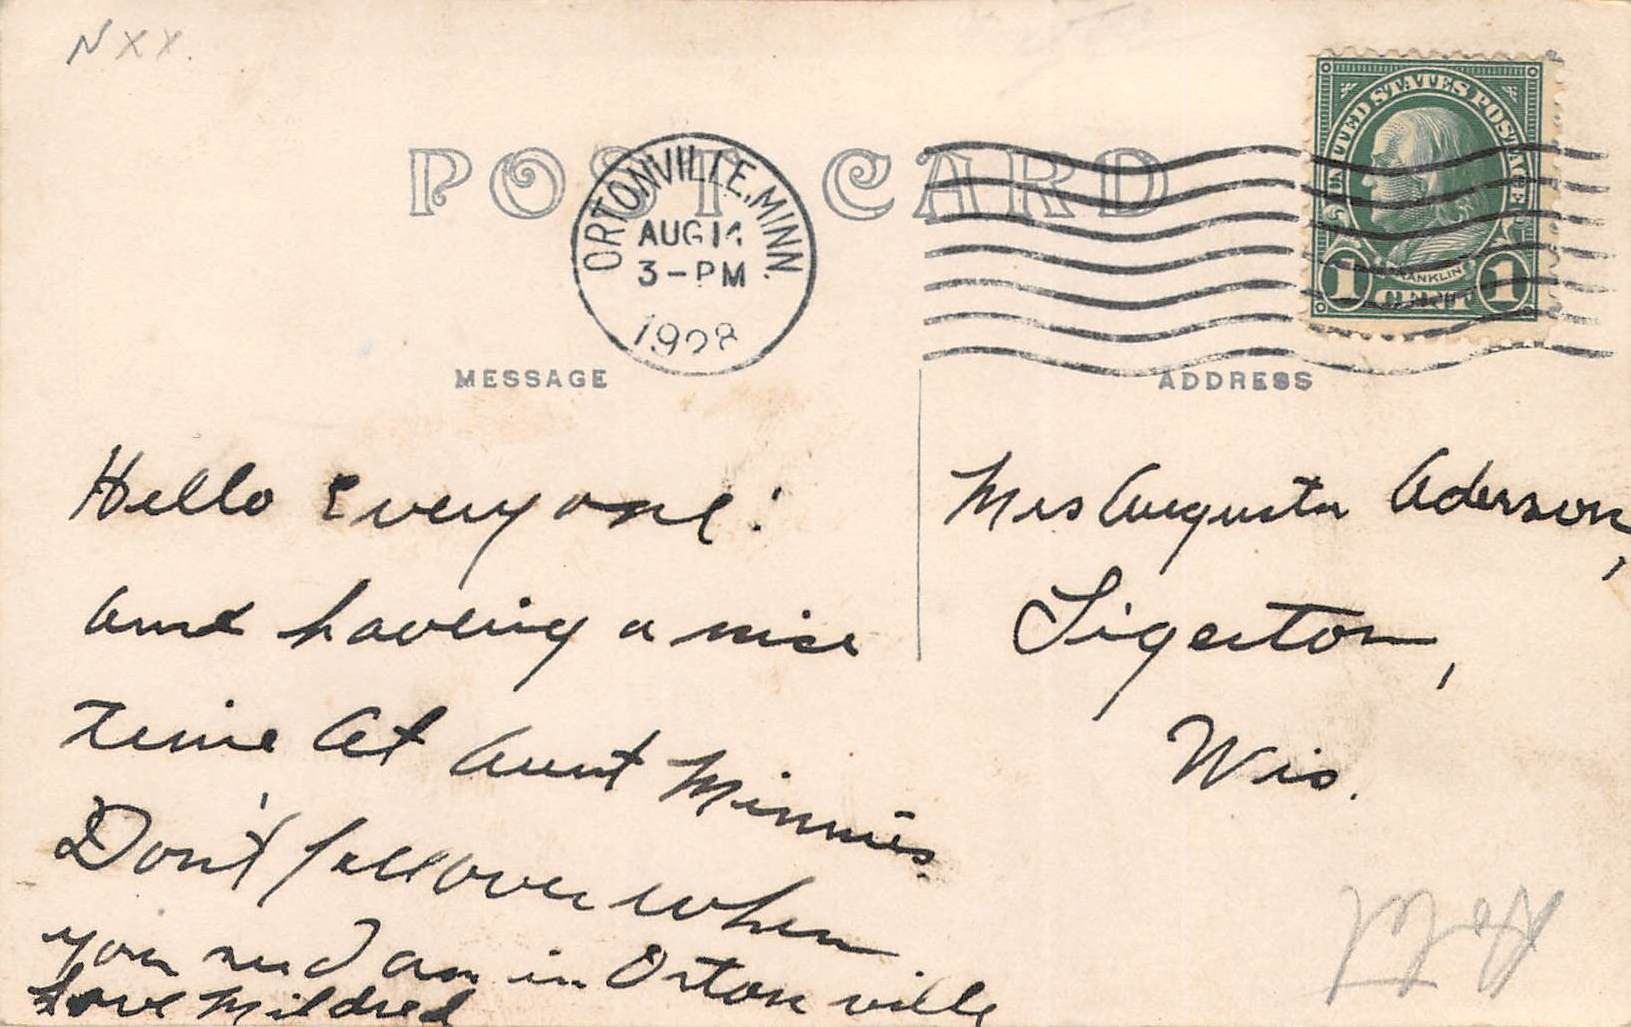 NXX.
POST CARD
ORTONVILLE, MINN.
AUG 14
3-PM
1928
UNITED STATES POSTAGE
FRANKLIN
1 CENT 1
MESSAGE
ADDRESS
Hello Everyone!
Am having a nice
time at Aunt Minnies
Don't fall over when
you read I am in Ortonville
Love Mildred
Mrs Augusta Aderson,
Tigerton,
Wis.